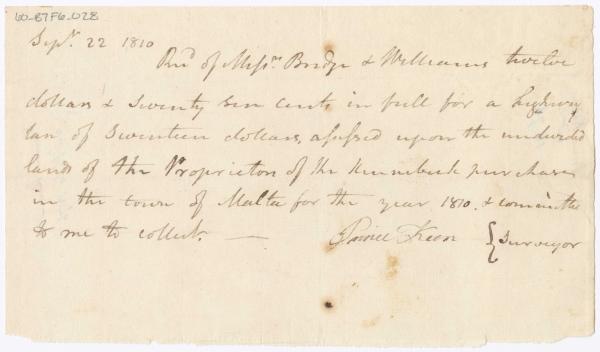 60-B7F6-028
Sepr. 22 1810
Recd of Messrs Bridge & Williams twelve
dollars & Seventy cents in full for a highway
tax of Seventeen dollars, assessed upon the undivided
lands of the Proprietors of the Kennebeck purchase
in the town of Malta for the year 1810. &
to me to collect. — Keen { Surveyor